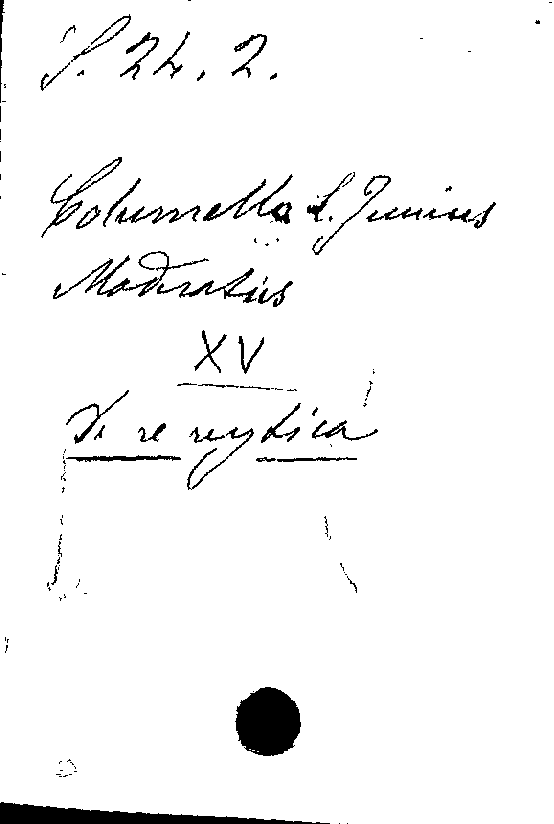 S. 24. 2.
Columella L. Junius
Moderatus
XV
De re rustica